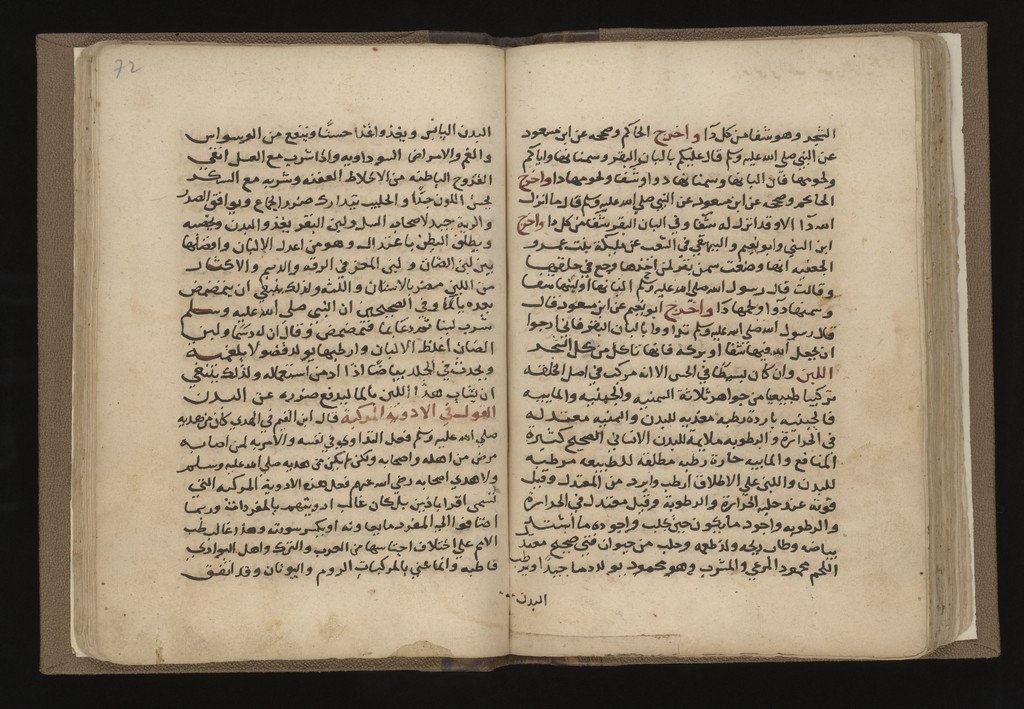 الشجر وهو شفا من كل دا واخرج الحاكم وصححه عن ابن مسعود
عن النبي صلى الله عليه وسلم قال عليكم بالبان البقر وسمنانها واياكم
ولحومها فان البانها وسمنانها دوا وشفا ولحومها دا واخرج
الحاكم وصححه عن ابن مسعود عن النبي صلى الله عليه وسلم قال ما انزل
الله دآ الا وقد انزل له شفا وفي البان البقر شفا من كل دا واخرج
ابن السني وابو نعيم والبيهقي في الشعب عن مليكة بنت عمرو
الجعفيه انها وصفت سمن بقر لمن اخذها وجع في حلقها
وقالت قال رسول الله صلى الله عليه وسلم البانها او لبنها شفا
وسمنها دوا ولحمها دا واخرج ابو نعيم عن ابن مسعود قال
قال رسول الله صلى الله عليه وسلم تداووا بالبان البقر فاني ارجوا
ان يجعل الله فيها شفا او بركة فانها تاكل من كل الشجر
اللبن وان كان بسيطا في الحس الا انه مركب في اصل الخلقه
تركيبا طبيعيا من جواهر ثلاثة السمنية والجبنيه والماييه
فالجبنيه باردة رطبه مغذيه للبدن والسمنيه معتدله
في الحرارة والرطوبه ملايمة للبدن الانساني الصحيح كثيرة
المنافع والماييه حارة رطبه مطلقه للطبيعه مرطبه
للبدن واللبن على الاطلاق ارطب وابرد من المعتدل وقيل
قوته عند حلبه الحرارة والرطوبة وقيل معتدل في الحرارة
والرطوبه واجود ما يكون حين يحلب واجوده ما اشتد
بياضه وطاب ريحه ولذ طعمه وحلب من حيوان فتي صحيح معتدل
اللحم محمود المرعي والمشرب وهو محمود يولد دما جيدا ويرطب
البدن
72
البدن اليابس ويغذوا غذا حسنا وينفع من الوسواس
والغم والامراض السوداويه واذا شرب مع العسل انقى
القروح الباطنه من الاخلاط العفنه وشربه مع السكر
يحسن اللون جدا والحليب يتدارك ضرر الجماع ويوافق الصدر
والرية جيد لاصحاب السل ولبن البقر يغذو البدن ويخصبه
ويطلق البطن باعتدال وهو من اعدل الالبان وافضلها
بين لبن الضان ولبن المعز في الرقه والدسم والاكثار
من اللبن مضر بالاسنان واللثه ولذلك ينبغي ان يتمضمض
بعده بالما وفي الصحيحين ان النبي صلى الله عليه وسلم
شرب لبنا ثم دعا بما فتمضمض وقال ان له دسما ولبن
الضان اغلظ الالبان وارطبها يولد فضولا بلغميه
ويحدث في الجلد بياضا اذا ادمن استعماله ولذلك ينبغي
ان يشاب هذا اللبن بالما ليدفع ضرره عن البدن
القول في الادويه المركبة قال ابن القيم في الهدي كان من هديه
صلى الله عليه وسلم فعل التداوي في نفسه والامر به لمن اصابه
مرض من اهله واصحابه ولكن لم يكن من هديه صلى الله عليه وسلم
ولا هدي اصحابه رضي الله عنهم فعل هذه الادوية المركبه التي
تسمى اقراباذين بل كان غالب ادويتهم بالمفردات وربما
اضافوا الى المفرد ما يعاونه او يكسر سورته وهذا غالب طب
الامم على اختلاف اجناسها من العرب والترك واهل البوادي
قاطبه وانما عني بالمركبات الروم واليونان وقد اتفق